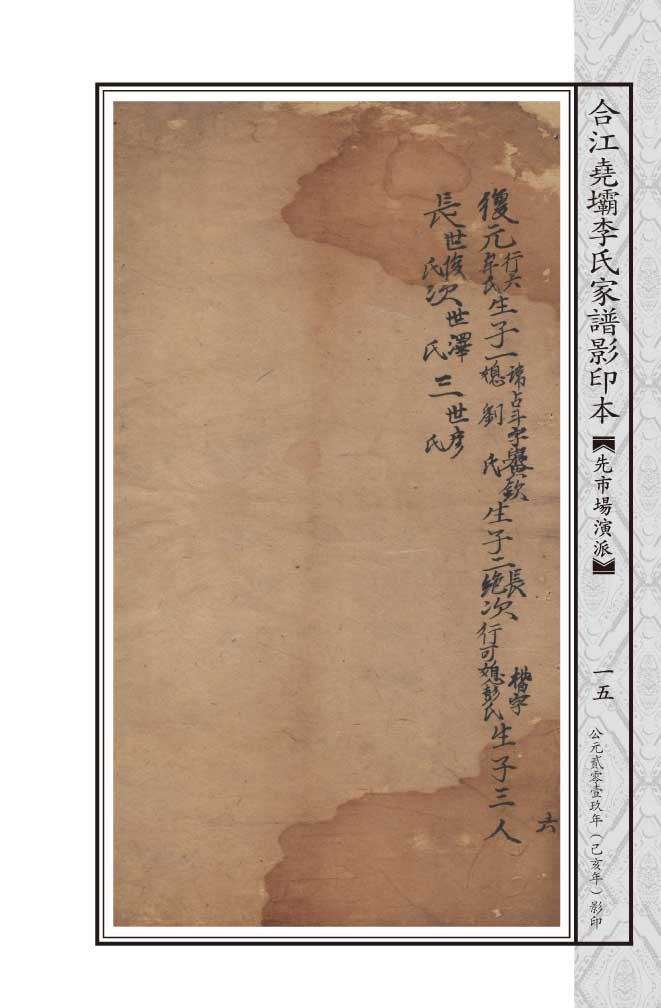 合江堯壩李氏家譜影印本
【先市場演派】
一五
公元貳零壹玖年（己亥年）影印
六
復元行六牟氏生子一諱占斗字
媳劉氏生子二長絶次楷字行可媳彭氏生子三人
長世俊氏次世澤氏三世彥氏